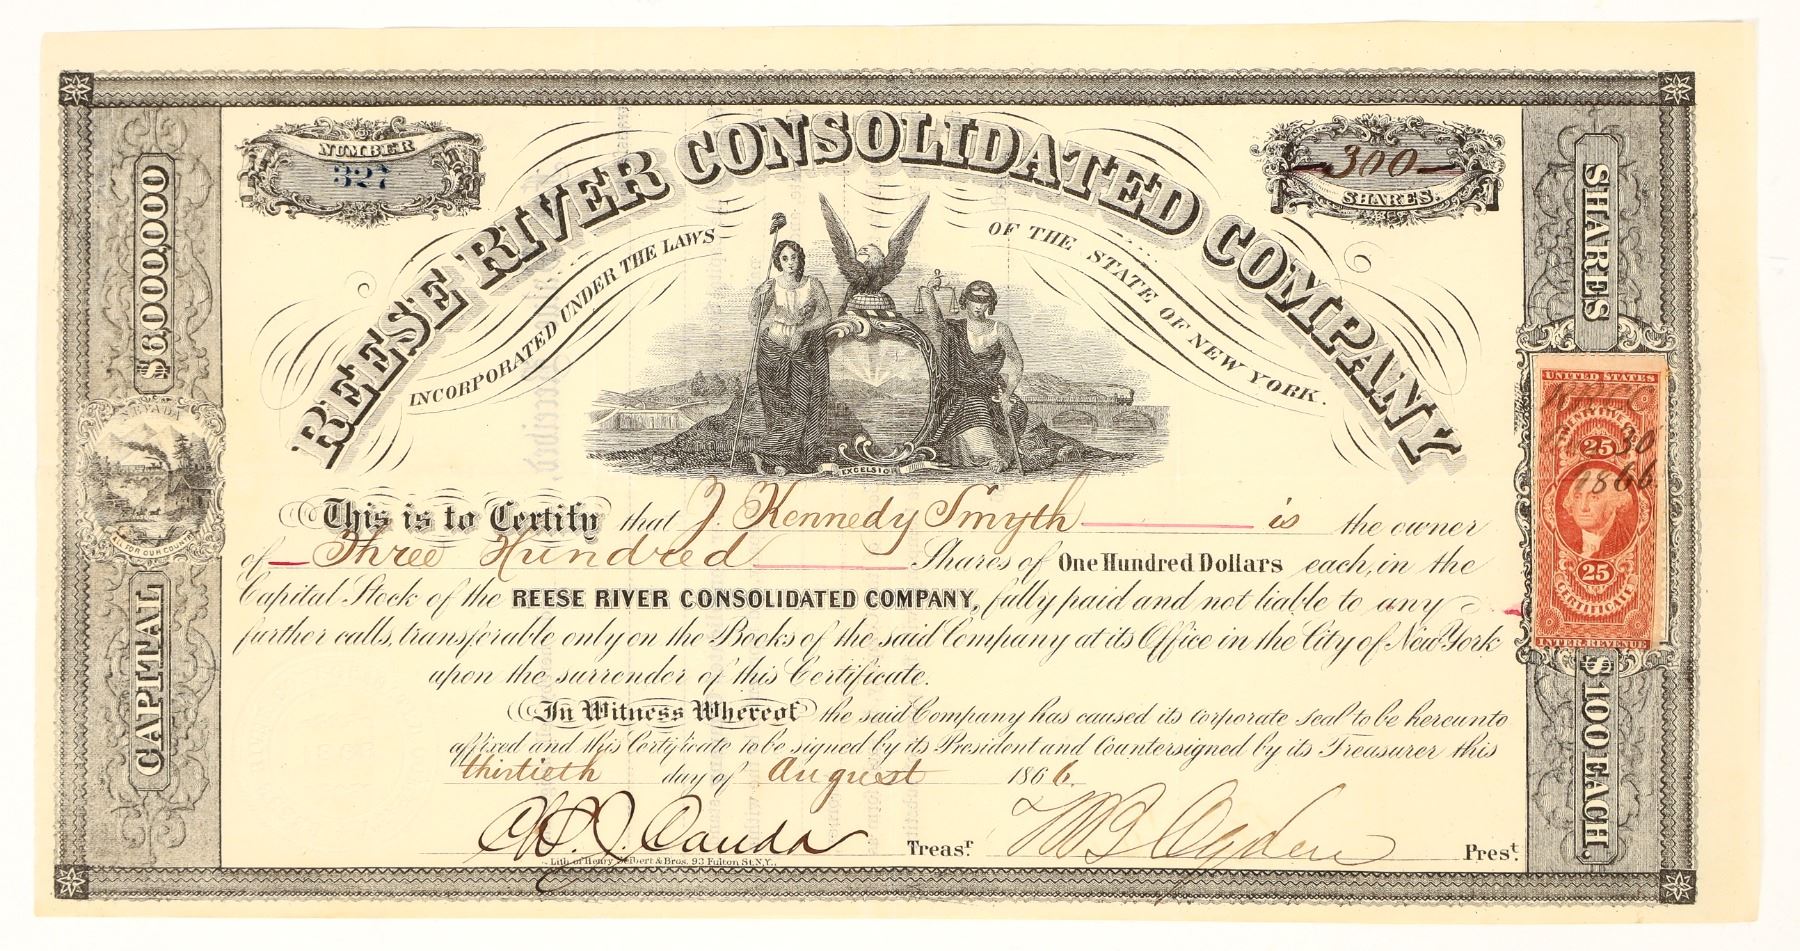 NUMBER
327
300
SHARES.
REESE RIVER CONSOLIDATED COMPANY
INCORPORATED UNDER THE LAWS OF THE STATE OF NEW YORK.
EXCELSIOR
$6,000,000
NEVADA
ALL FOR OUR COUNTRY
CAPITAL
SHARES
$100 EACH.
UNITED STATES
30
25
1866
25
CERTIFICATE
INTER. REVENUE
This is to Certify that J. Kennedy Smyth is the owner
of Three Hundred Shares of One Hundred Dollars each, in the
Capital Stock of the REESE RIVER CONSOLIDATED COMPANY, fully paid and not liable to any
further calls, transferable only on the Books of the said Company at its Office in the City of New York
upon the surrender of this Certificate.
In Witness Whereof the said Company has caused its corporate seal to be hereunto
affixed and this Certificate to be signed by its President and Countersigned by its Treasurer this
thirtieth day of August 1866.
Treasr. Prest.
Lith. of Henry Seibert & Bros. 93 Fulton St. N.Y.